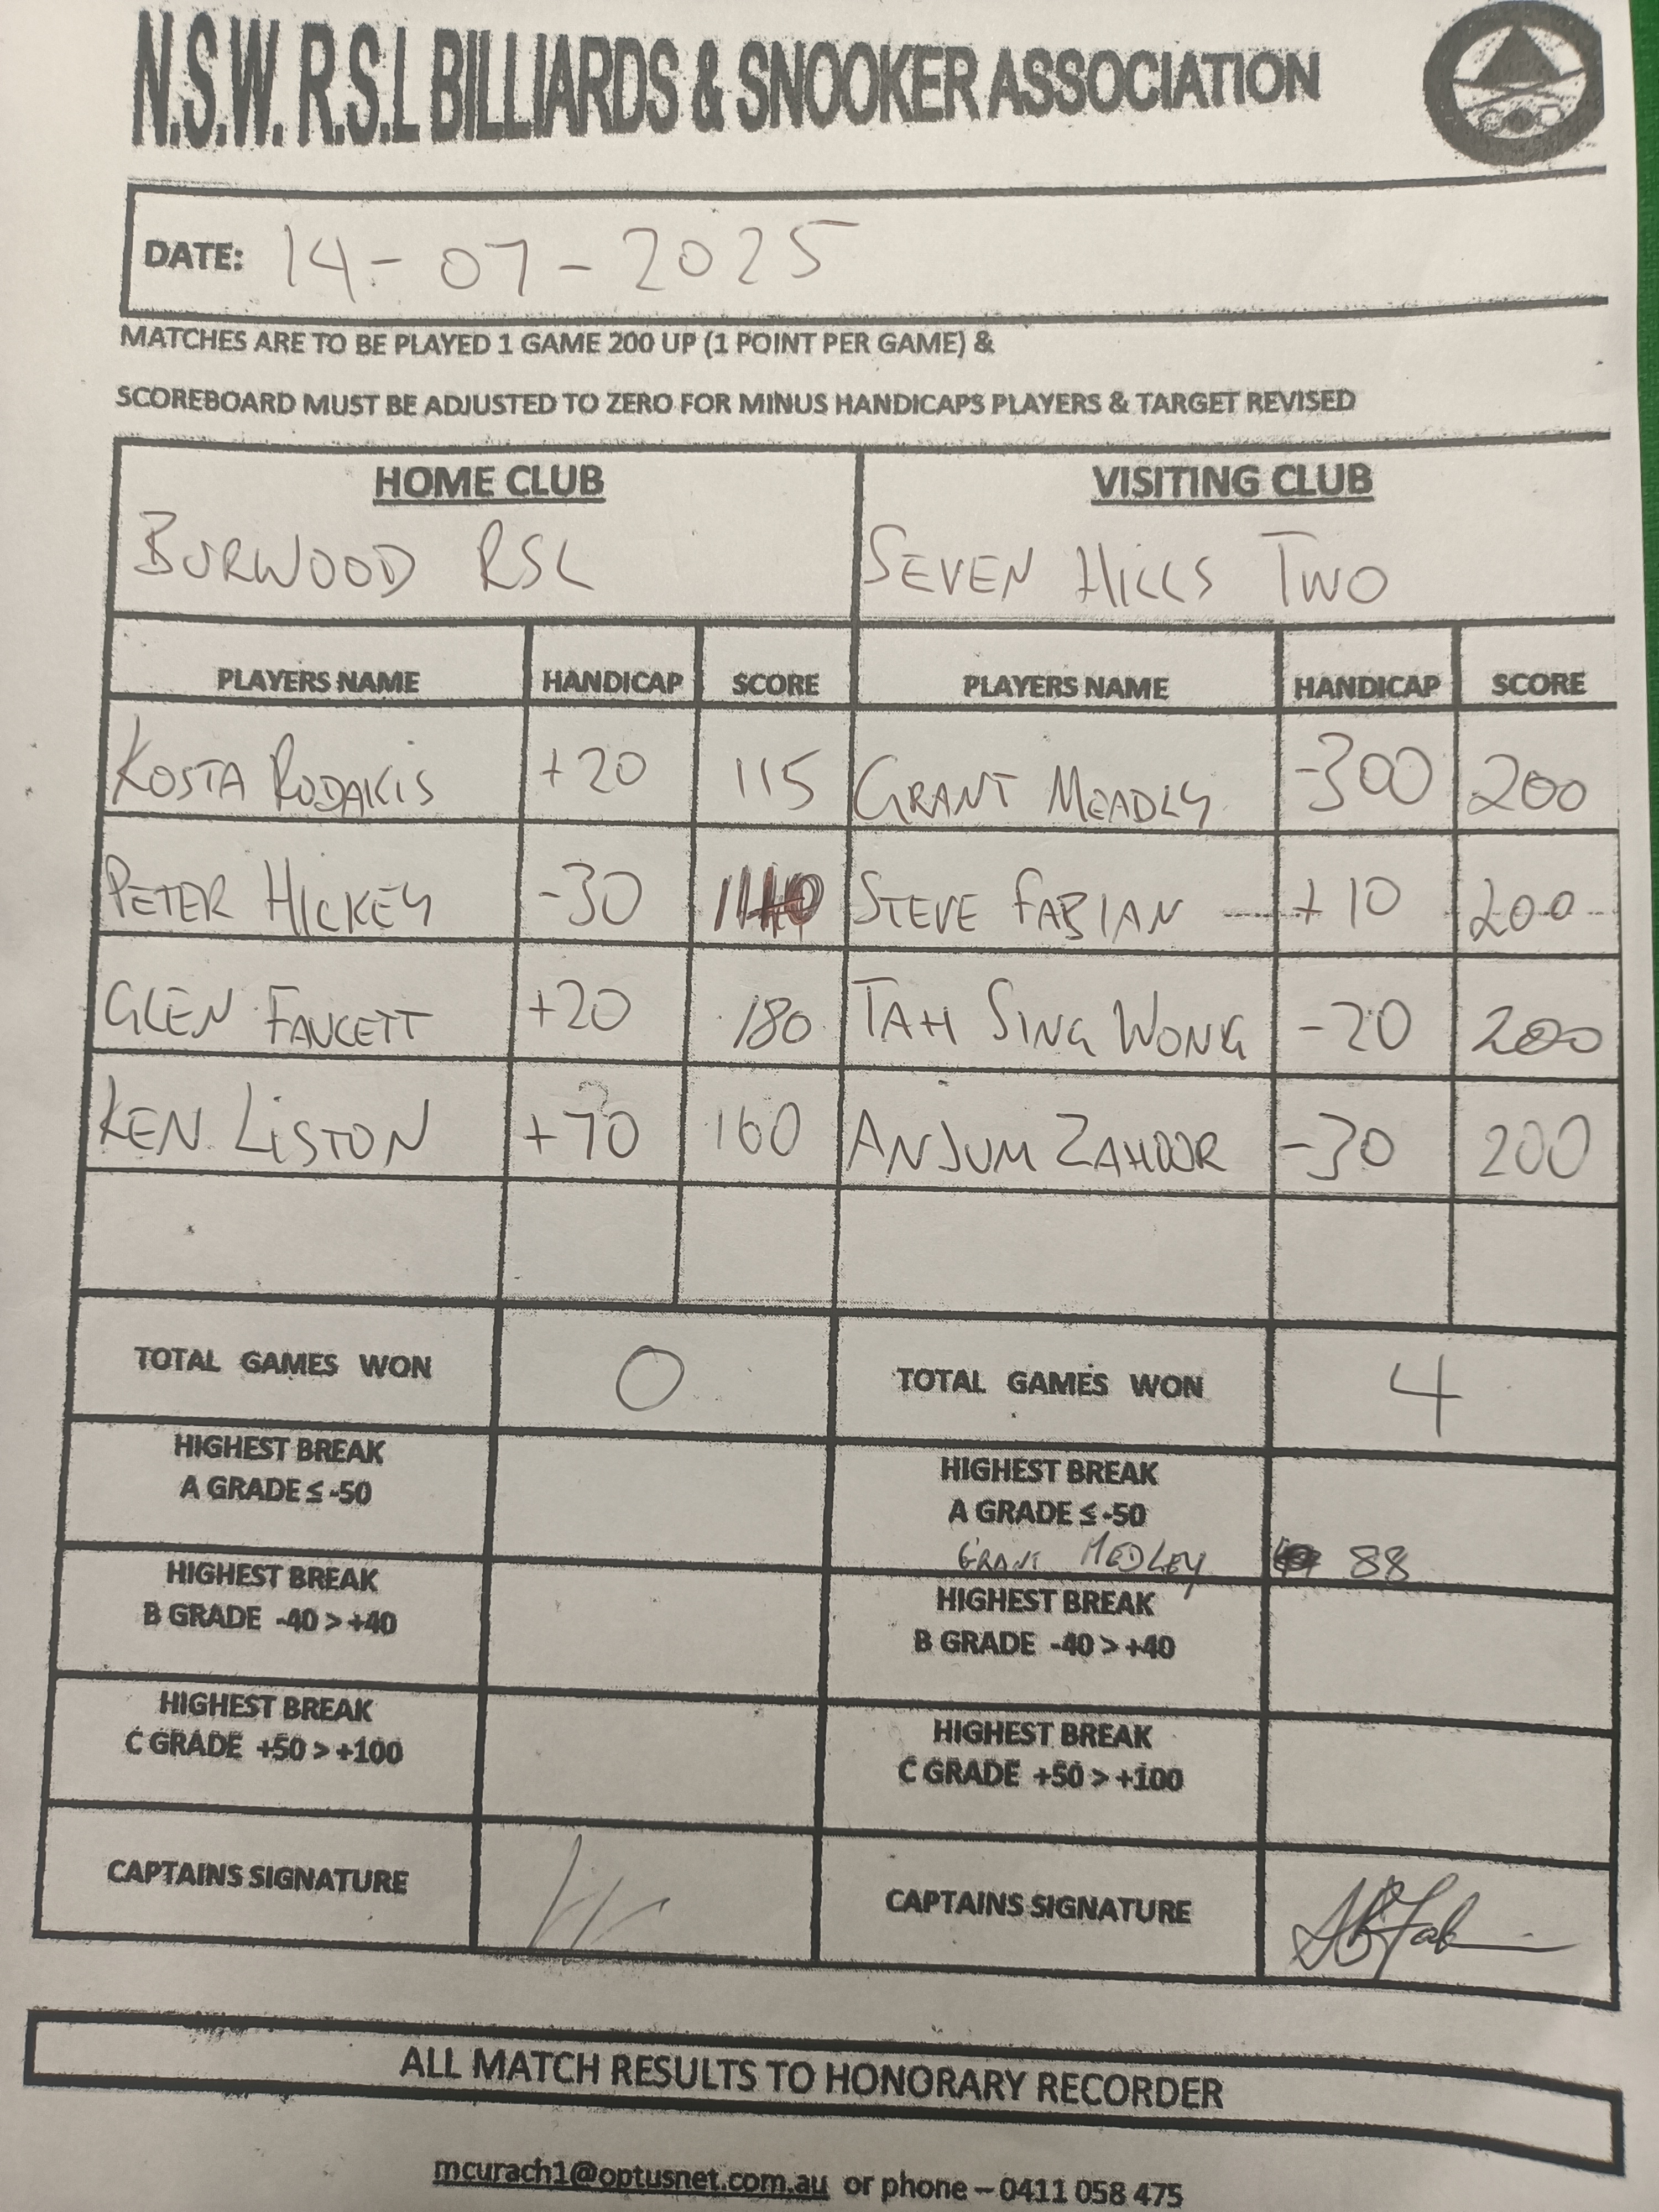 N.S.W. R.S.L BILLIARDS & SNOOKER ASSOCIATION
DATE: 14-07-2025
MATCHES ARE TO BE PLAYED 1 GAME 200 UP (1 POINT PER GAME) &
SCOREBOARD MUST BE ADJUSTED TO ZERO FOR MINUS HANDICAPS PLAYERS & TARGET REVISED
HOME CLUB VISITING CLUB
BURWOOD RSL SEVEN HILLS TWO
PLAYERS NAME HANDICAP SCORE PLAYERS NAME HANDICAP SCORE
KOSTA RODAKIS +20 115 GRANT MEADLY -300 200
PETER HICKEY -30 STEVE FABIAN +10 200
GLEN FAUCETT +20 180 TAH SING WONG -20 200
KEN LISTON +70 160 ANJUM ZAHOOR -30 200
TOTAL GAMES WON 0 TOTAL GAMES WON 4
HIGHEST BREAK
A GRADE ≤ -50
HIGHEST BREAK
A GRADE ≤ -50
GRANT MEDLEY 88
HIGHEST BREAK
B GRADE -40 > +40
HIGHEST BREAK
B GRADE -40 > +40
HIGHEST BREAK
C GRADE +50 > +100
HIGHEST BREAK
C GRADE +50 > +100
CAPTAINS SIGNATURE CAPTAINS SIGNATURE
ALL MATCH RESULTS TO HONORARY RECORDER
mcurach1@optusnet.com.au or phone – 0411 058 475